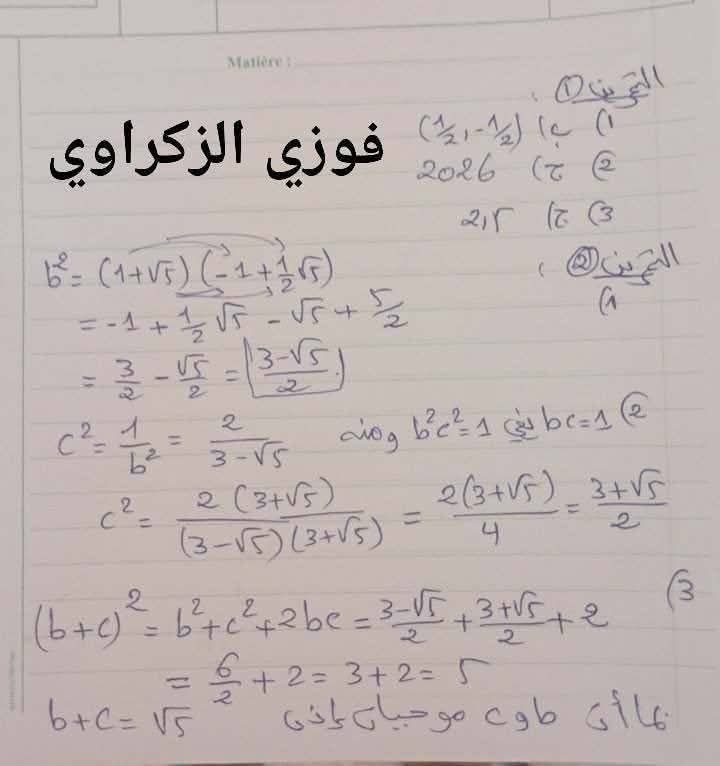 Matière :
التمرين ①
1) ب) (1/2, -1/2)
2) ج) 2026
3) ج) 2,5
فوزي الزكراوي
التمرين ②
1)
b² = (1+√5)(-1+1/2√5)
= -1 + 1/2√5 - √5 + 5/2
= 3/2 - √5/2 = (3-√5)/2
2) bc=1 يعني b²c²=1 ومنه c² = 1/b² = 2/(3-√5)
c² = 2(3+√5)/((3-√5)(3+√5)) = 2(3+√5)/4 = (3+√5)/2
3) (b+c)² = b²+c²+2bc = (3-√5)/2 + (3+√5)/2 + 2
= 6/2 + 2 = 3+2 = 5
بما أن b و c موجبان إذن b+c = √5